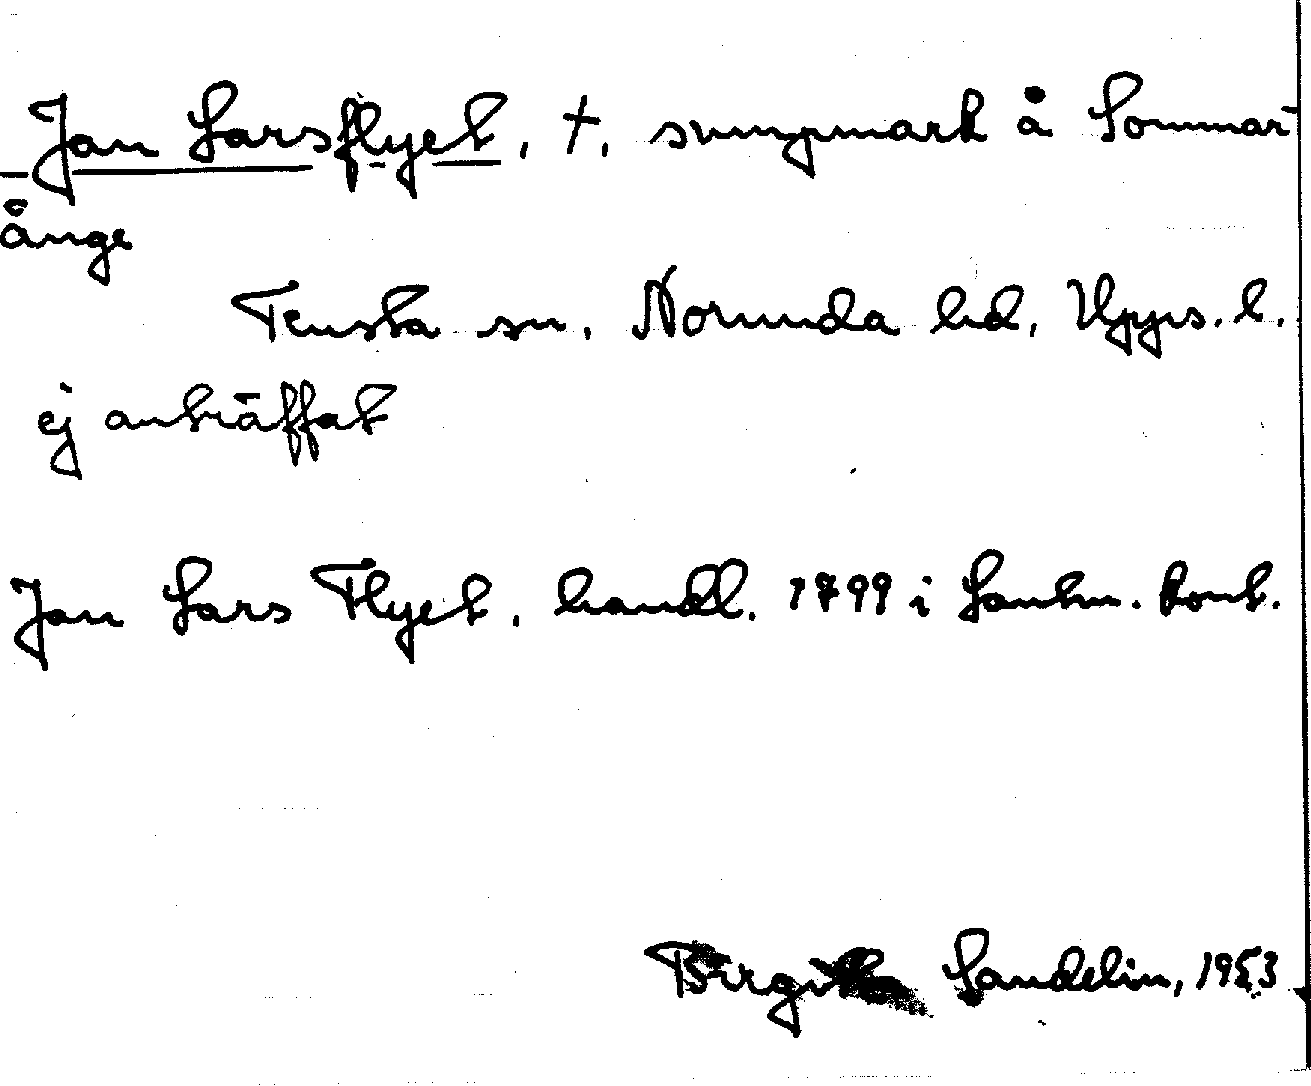 Jan Larsflyet, †, sumpmark å Sommar-
änge
Tensta sn, Norunda hd, Upps. l.
ej anträffat
Jan Lars Flyet, handl. 1799 i Lantm. kont.
Birgitta Sandelin, 1953